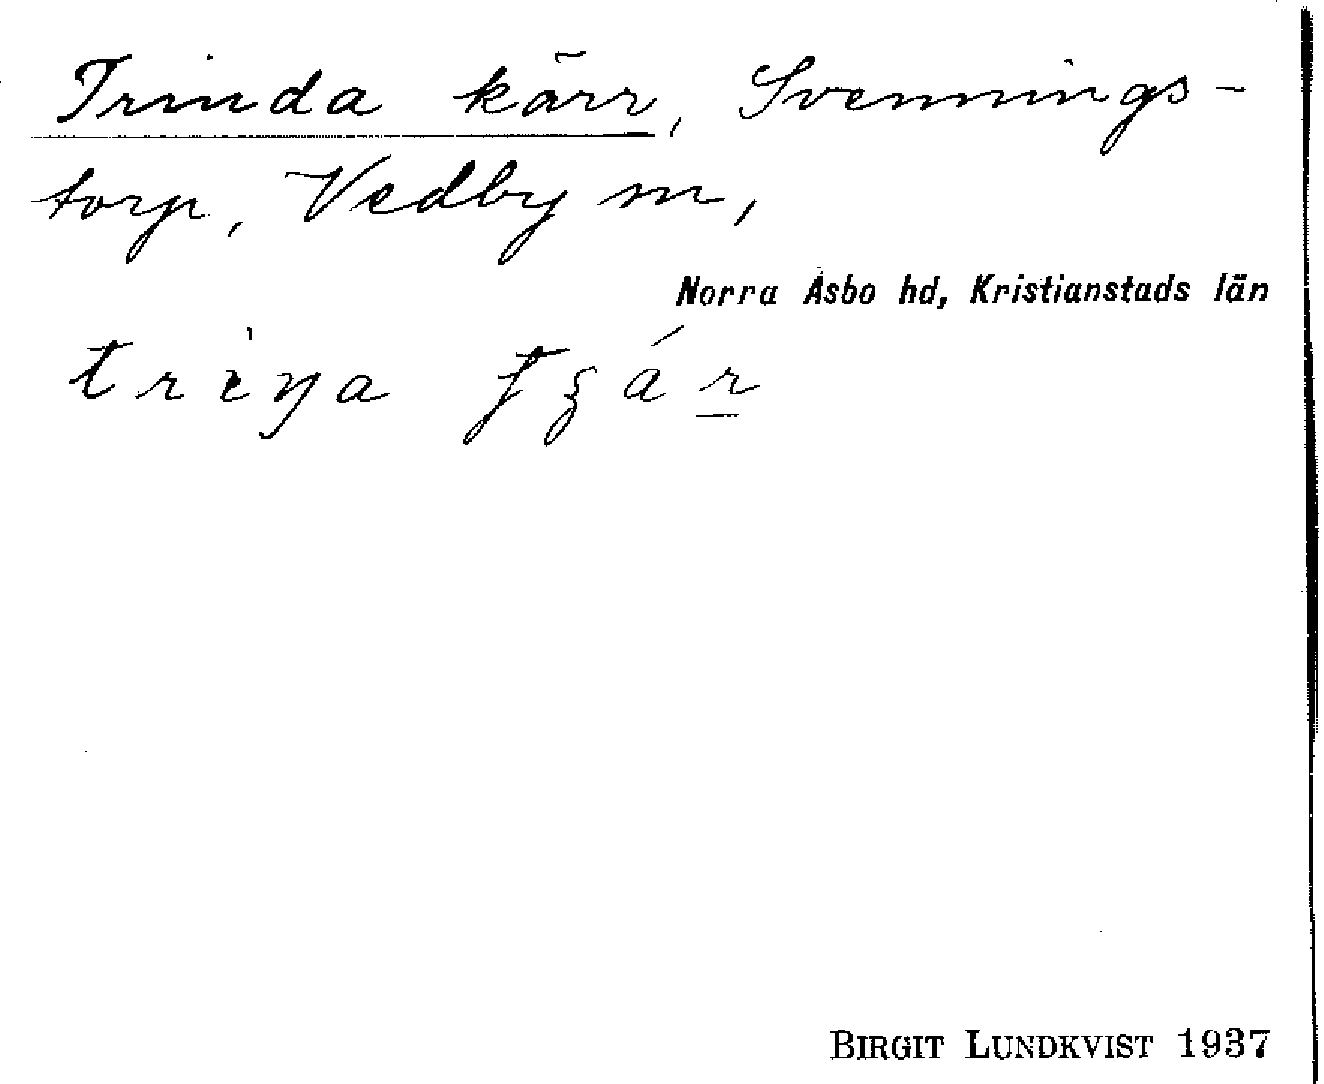 Trinda kärr, Svennings-
torp, Vedby sn,
Norra Åsbo hd, Kristianstads län
BIRGIT LUNDKVIST 1937